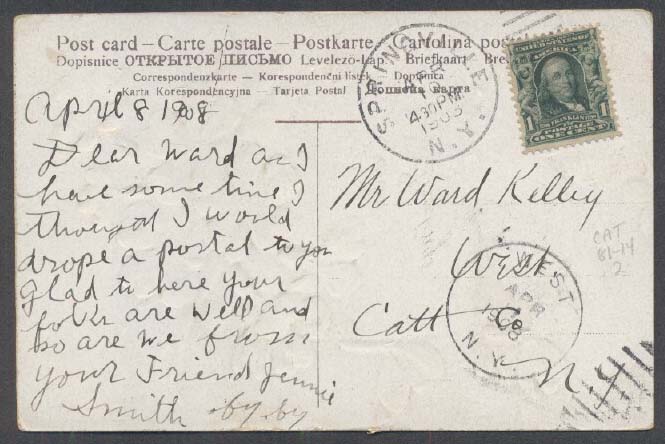 Post card – Carte postale – Postkarte – Cartolina pos
Dopisnice ОТКРЫТОЕ ПИСЬМО Levelezö-Lap. Briefkaart Bre
Correspondenzkarte – Korespondenční lístek Dopisnica
Karta Korespondencyjna – Tarjeta Postal
SPRINGVILLE
APR
8
430PM
1908
N.Y.
UNITED STATES OF AMERICA
FRANKLIN
1 POSTAGE 1
ONE CENT
April 8 1908
Dear Ward as I
have some time I
thought I would
drope a postal to you
glad to here your
folks are well and
so are we from
your Friend Jennie
Smith by by
Mr Ward Kelley
West
Catt Co
N.Y.
WEST
APR
1908
N.Y.
CAT
81-14
2